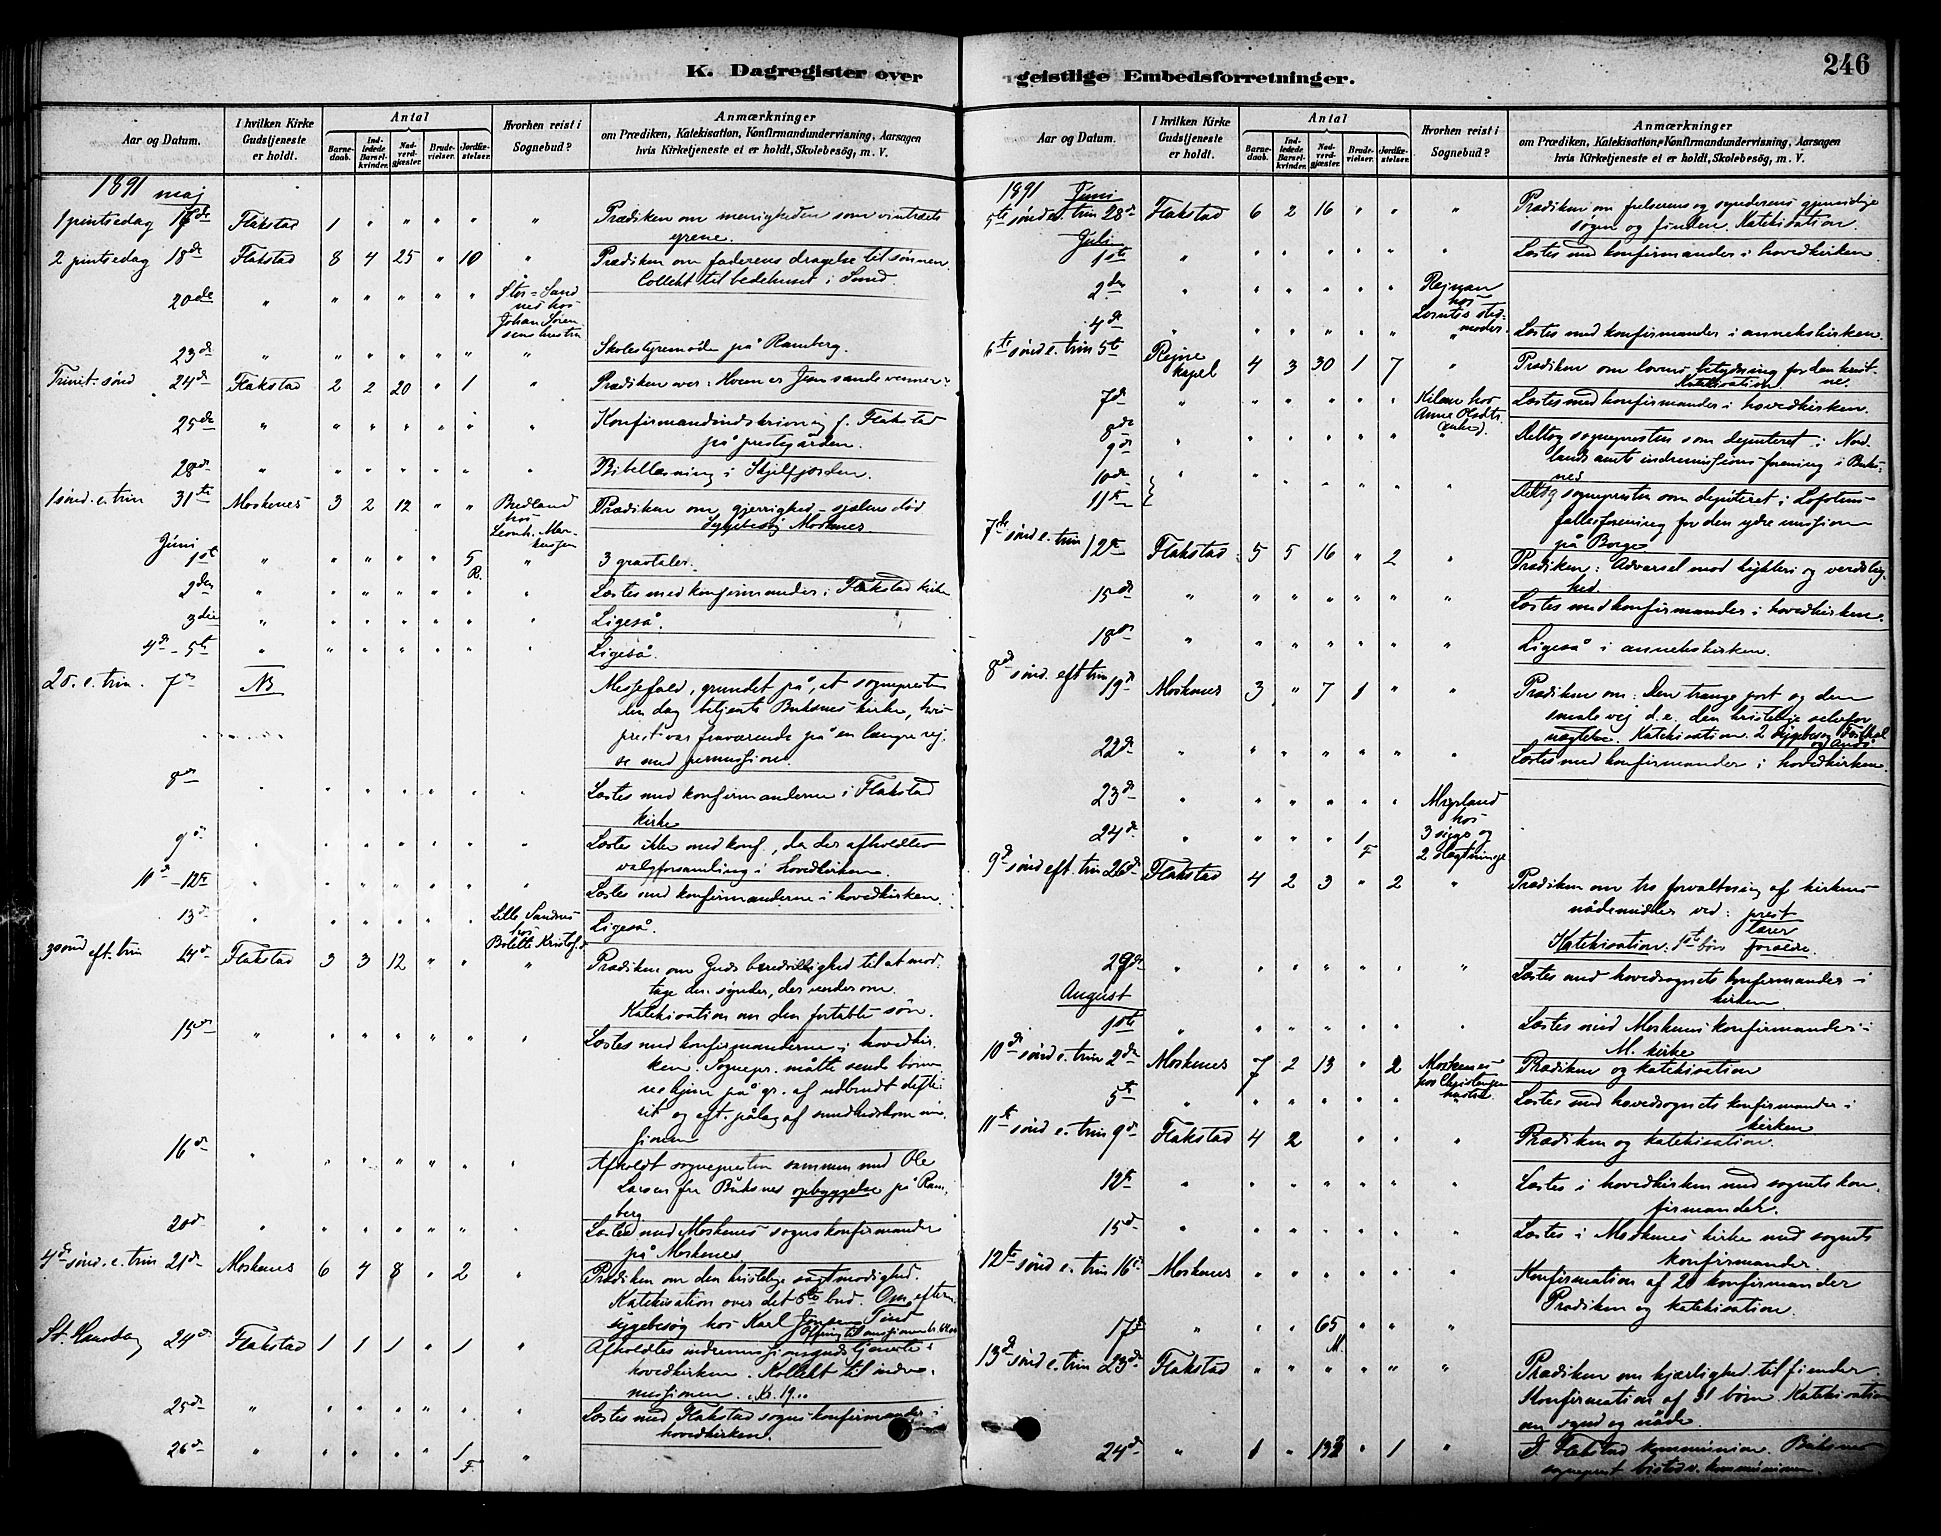 K. Dagregister over geistlige Embedsforretninger.
246
Aar og Datum.
I hvilken Kirke Gudstjeneste er holdt.
Antal
Barnedaab.
Indledede Barselkvinder.
Nadverdgjæster.
Brudevielser.
Jordfæstelser.
Hvorhen reist i Sognebud?
Anmærkninger
om Prædiken, Katekisation, Konfirmandundervisning, Aarsagen
hvis Kirketjeneste ei er holdt, Skolebesög, m. V.
1891 maj
1 pintsedag 17de Flakstad 1 " " " " " Prædiken om menigheden som vintræets
grene.
2 pintsedag 18de Flakstad 8 4 25 " 10 " Prædiken om faderens dragelse til sønnen.
Collekt til bedehuset i Sund.
20de " " " " " " Stor-Sand
nes hos
Johan Søren
sens hustru
23de " " " " " " " Skolestyremøde på Ramberg.
Trinit. sønd 24de Flakstad 2 2 20 " 1 " Prædiken over: Hvem er Jesu sande venner?
25de " " " " " " " Konfirmandindskrivning f. Flakstad
på prestegården.
28de " " " " " " " Bibellæsning i Skjelfjorden.
1 sønd. e. trin 31te Moskenes 3 2 12 " " Prædiken om gjerrighed - sjælens død
Sygebesøg Moskenes
Juni 1ste " " " " " 5 R. " 3 gravtaler.
2den " " " " " " " Læstes med konfirmander i Flakstad kirke
3die " " " " " " " Ligeså.
4de - 5te " " " " " " Ligeså.
2 s. e. trin. 7de NB Messefald, grundet på, at sognepresten
den dag betjente Buksnes kirke, hvis
prest var fraværende på en længre rej-
se med permission.
8de " " " " " " Læstes med konfirmanderne i Flakstad
kirke
9de " " " " " " " Læstes ikke med konf, da der afholdtes
valgforsamling i hovedkirken.
11te - 12te " " " " " " " Læstes med konfirmanderne i hovedkirken.
13de " " " " " " Lille Sandnes
hos
Bolette Kristof. d. Ligeså.
3 sønd eft. trin 14de Flakstad 3 3 12 " " " Prædiken om Guds beredvillighed til at mod-
tage den synder, der vender om.
Katekisation om den fortabte søn.
15de " " " " " " " Læstes med konfirmanderne i hovedkir-
ken. Sognepr. måtte sende børne-
ne hjem på gr. af udbrudt difte-
rit og eft. pålæg af sundhedskommis-
sionen
16de " " " " " " " Afholdt sognepresten sammen med Ole
Larsen fra Buksnes opbyggelse på Ram-
berg
20de " " " " " " Læstes med Moskenes sogns konfirmander
på Moskenes
4de sønd. e. trin 21de Moskenes 6 4 8 " 2 " Prædiken om den kristelige sagtmodighed.
Katekisation over det 5te bud. Om efterm.
sygebesøg hos Karl Jensen Tind
St. Hansdag 24de Flakstad 1 1 1 " 1 " Afholdtes indremissionsgudstjeneste i
hovedkirken. Kollekt til indre-
missionen. Kr. 19
25de " " " " " " " Læstes med Flakstad sogns konfirmander i
hovedkirken.
26de " " " " " 1 F. "
Aar og Datum.
I hvilken Kirke Gudstjeneste er holdt.
Antal
Barnedaab.
Indledede Barselkvinder.
Nadverdgjæster.
Brudevielser.
Jordfæstelser.
Hvorhen reist i Sognebud?
Anmærkninger
om Prædiken, Katekisation, Konfirmandundervisning, Aarsagen
hvis Kirketjeneste ei er holdt, Skolebesög, m. V.
1891 Juni
5te sønd e. trin 28de Flakstad 6 2 16 " " " Prædiken om frelserens og synderens gjensidige
søgen og finden. Katekisation.
Juli
1ste " " " " " " " Læstes med konfirmander i hovedkirken.
2den " " " " " " Rejnan
hos
4de " " " " " " " Læstes med konfirmander i annekskirken.
6te sønd e. trin 5te Rejne kapel 4 3 30 1 7 " Prædiken om lovens betydning for den krist-
ne. Katekisation.
7de " " " " " " Kilan hos
Anne Olsdts
enked. Læstes med konfirmander i hovedkirken.
8de
9de " " " " " " " Deltog sognepresten som deputeret i Nord-
lands amts indremissionsforening i Buks-
nes
10de
11te " " " " " " " Deltog sognepresten som deputeret i Lofotens
fællesforening for den ydre mission
på Borge
7de sønd e. trin 12te Flakstad 5 5 16 " 2 Prædiken: Advarsel mod hykleri og verdslig-
hed.
15de " " " " " " " Læstes med konfirmander i hovedkirken.
18de " " " " " " " Ligeså i annekskirken.
8de sønd. eft trin 19de Moskenes 3 " 7 1 " " Prædiken om: Den trange port og den
smale vej d.e. den kristelige selvfor-
nægtelse. Katekisation. 2 sygebesøg
22de " " " " " " " Læstes med konfirmander i hovedkirken.
23de " " " " " " Myrland
hos
3 syge og
2 slægtninge
24de " " " " 1 F "
9de sønd eft. trin 26de Flakstad 4 2 3 " 2 " Prædiken om tro forvaltning af kirkens
nådemidler ved: prest
lærer
Katekisation: 1ste bøn forældre.
29de " " " " " " " Læstes med hovedsognets konfirmander i
kirken
August
1ste " " " " " " " Læstes med Moskenes konfirmander i
M. kirke
10de sønd e. trin 2den Moskenes 7 2 13 " 2 Moskenes
hos Christensens
hustru Prædiken og katekisation
5te " " " " " " Læstes med hovedsognets konfirmander i
kirken
11te sønd e. trin 9de Flakstad 4 2 " " " Prædiken og katekisation.
12te " " " " " " " Læstes i hovedkirken med sognets kon-
firmander.
15de " " " " " " " Læstes i Moskenes kirke med sognets
konfirmander.
12te sønd e. trin 16de Moskenes " " " " " " Konfirmation af 20 konfirmander
Prædiken og katekisation.
17de " " " 65 M. " " "
13de sønd e. trin 23de Flakstad " " " " " " Prædiken om kjærlighed til fiender
Konfirmation af 31 børn Katekisation
om synd og nåde.
24de " 1 " 132 " 1 " I Flakstad kommunion. Buksnes
sogneprest bistod v. kommunionen.